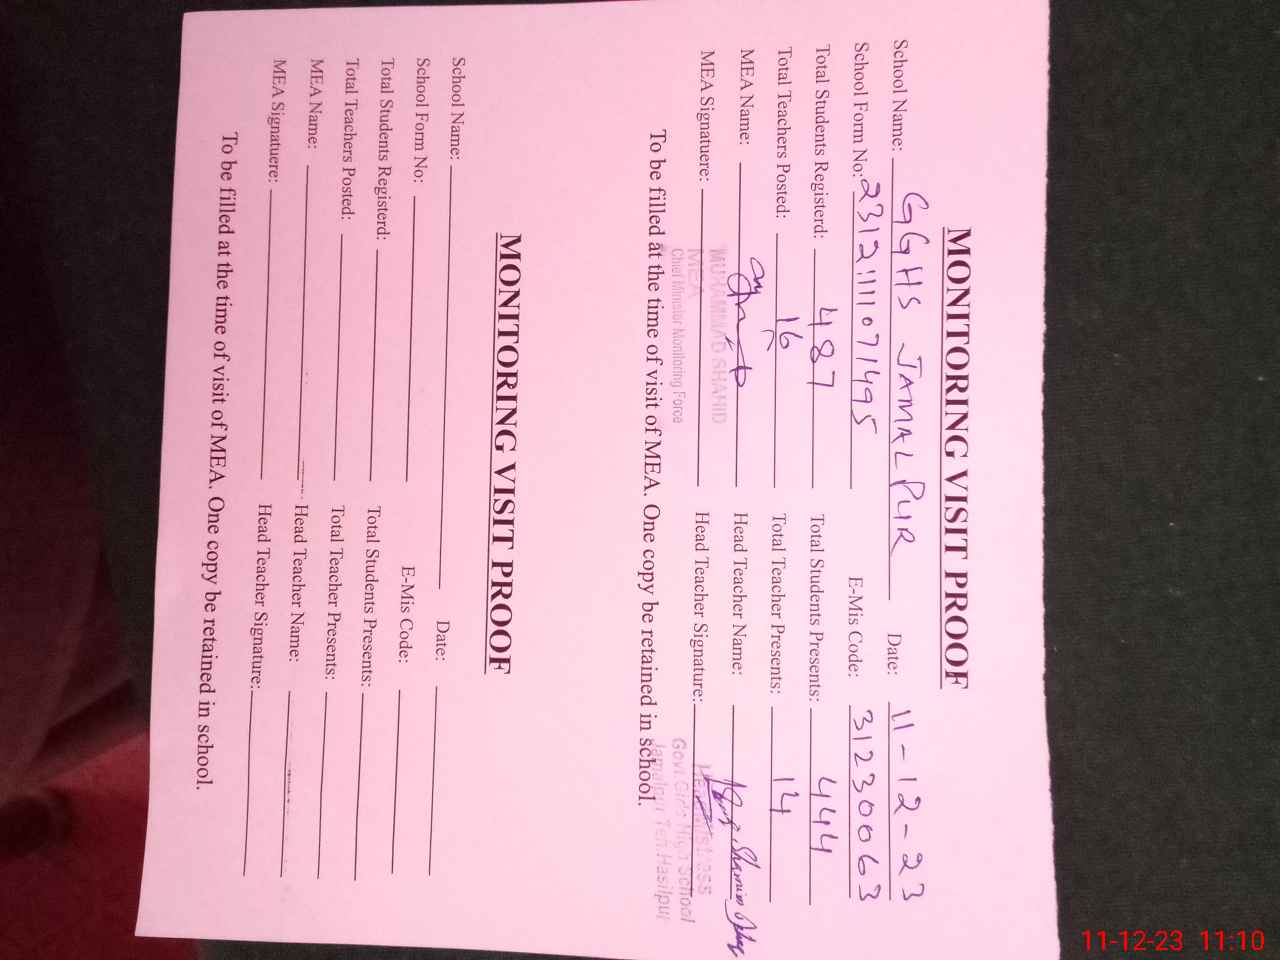 MONITORING VISIT PROOF
School Name: GGHS JAMALPUR Date: 11-12-23
School Form No: 2312111071495 E-Mis Code: 31230063
Total Students Registerd: 487 Total Students Presents: 444
Total Teachers Posted: 16 Total Teacher Presents: 14
MEA Name: Head Teacher Name:
MEA Signatuere: Head Teacher Signature:
MUHAMMAD SHAHID
MEA
Chief Minister Monitoring Force
HEADMISTRESS
Govt. Girls High School
Jamalpur Teh. Hasilpur
To be filled at the time of visit of MEA. One copy be retained in school.
MONITORING VISIT PROOF
School Name: Date:
School Form No: E-Mis Code:
Total Students Registerd: Total Students Presents:
Total Teachers Posted: Total Teacher Presents:
MEA Name: Head Teacher Name:
MEA Signatuere: Head Teacher Signature:
To be filled at the time of visit of MEA. One copy be retained in school.
11-12-23 11:10